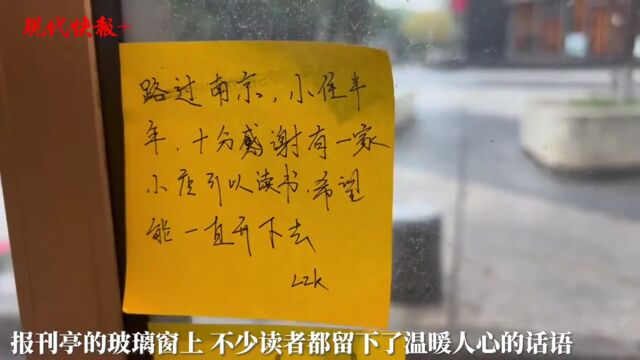 现代快报+
路过南京，小住半
年，十分感谢有一家
小店引以读书，希望
能一直开下去
LZK
报刊亭的玻璃窗上 不少读者都留下了温暖人心的话语